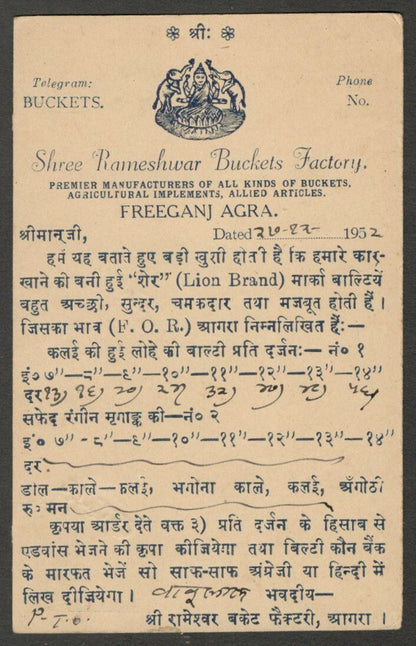 ❀ श्रीः ❀
Telegram:
BUCKETS.
Phone
No.
Shree Rameshwar Buckets Factory.
PREMIER MANUFACTURERS OF ALL KINDS OF BUCKETS,
AGRICULTURAL IMPLEMENTS, ALLIED ARTICLES.
FREEGANJ AGRA.
श्रीमान्‌जी, Dated २७-१२- 1952
हमें यह बताते हुए बड़ी खुशी होती है कि हमारे कार-
खाने की बनी हुई "शेर" (Lion Brand) मार्का बाल्टियें
बहुत अच्छी, सुन्दर, चमकदार तथा मजबूत होती हैं ।
जिसका भाव (F. O. R.) आगरा निम्नलिखित हैंः—
कलई की हुई लोहे की बाल्टी प्रति दर्जनः— नं० १
इं० ७"—८"—९"—१०"—११"—१२"—१३"—१४"
दर १३) १६) २०) २७ ३२) ४०) ४८)
सफेद रंगीन मृगाङ्क की—नं० २
इं० ७" - ८"—९"—१०"—११"—१२"—१३"—१४"
दरः
डाल—काले—कलई, भगोना काले, कलई, अँगीठी
रु॰ मन
कृपया आर्डर देते वक्त ३) प्रति दर्जन के हिसाब से
एडवांस भेजने की कृपा कीजियेगा तथा बिल्टी कौन बैंक
के मारफत भेजें सो साफ-साफ अंग्रेजी या हिन्दी में
लिख दीजियेगा । बाबूलाल भवदीय—
P.T.O. श्री रामेश्वर बकेट फैक्टरी, आगरा ।